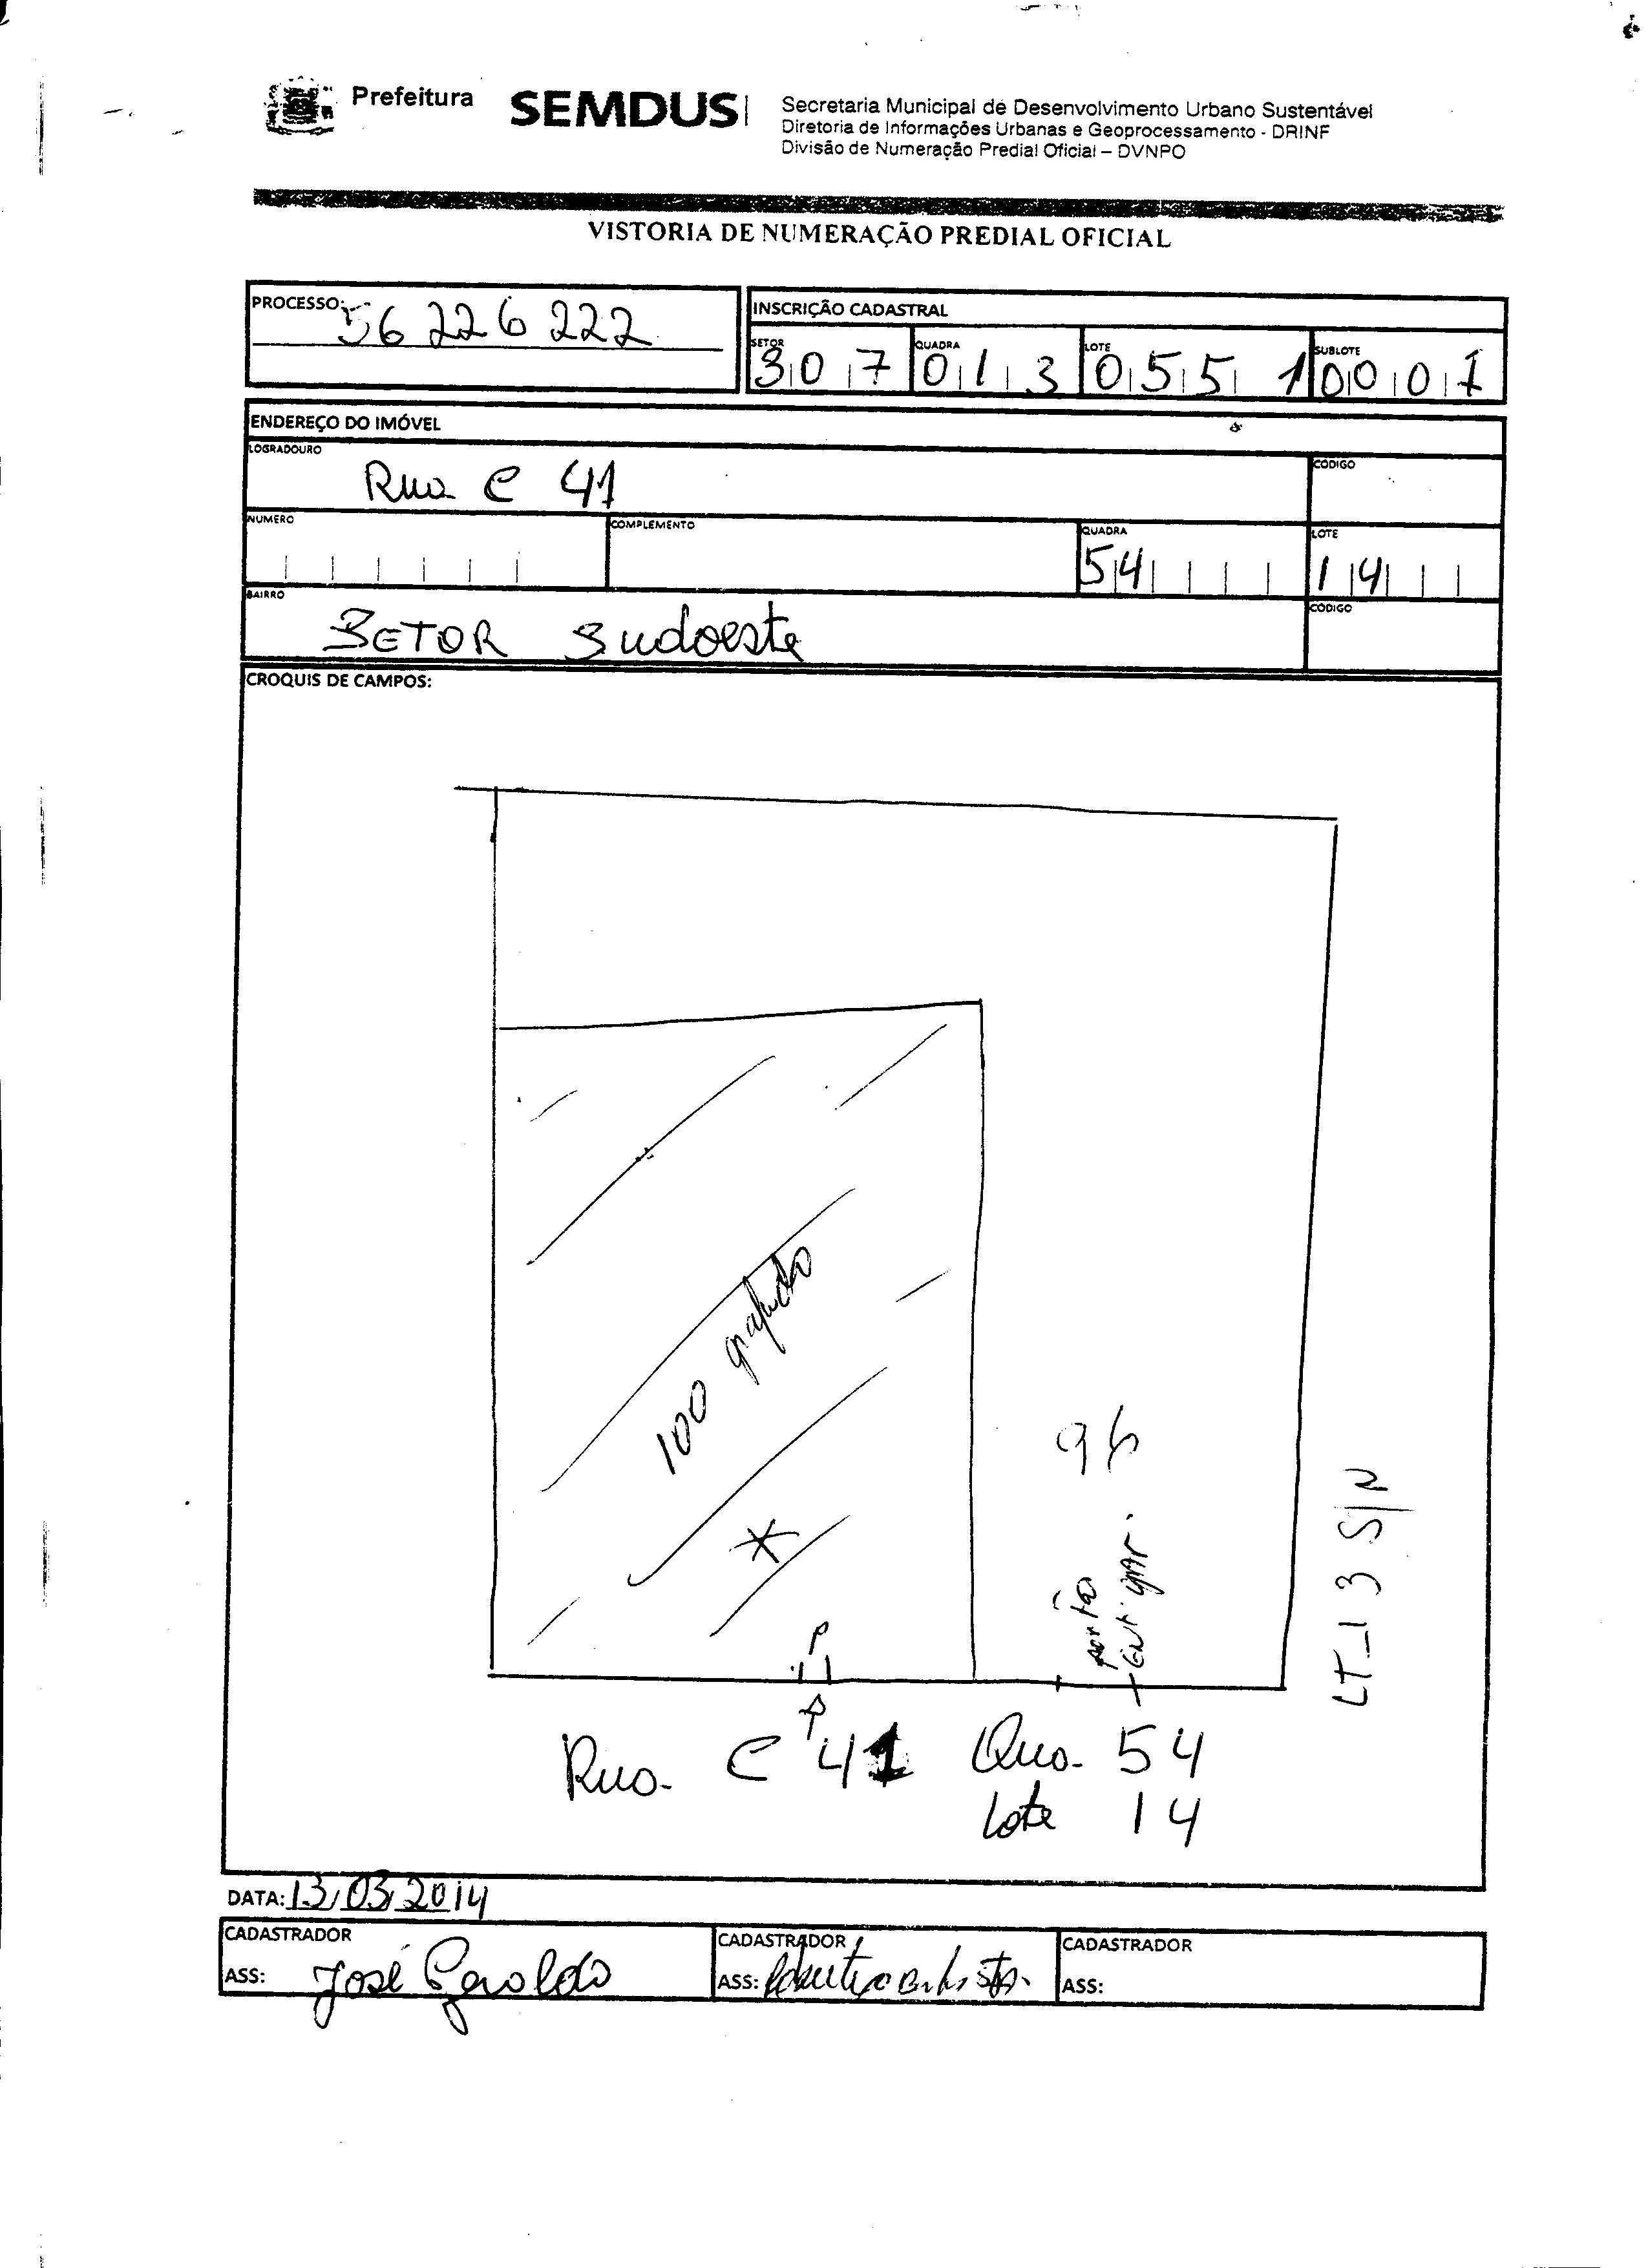 Prefeitura
SEMDUS
Secretaria Municipal de Desenvolvimento Urbano Sustentável
Diretoria de Informações Urbanas e Geoprocessamento - DRINF
Divisão de Numeração Predial Oficial – DVNPO
VISTORIA DE NUMERAÇÃO PREDIAL OFICIAL
PROCESSO: 56226222
INSCRIÇÃO CADASTRAL
SETOR QUADRA LOTE SUBLOTE
307 013 0551 0001
ENDEREÇO DO IMÓVEL
LOGRADOURO CÓDIGO
Rua C 41
NUMERO COMPLEMENTO QUADRA LOTE
54 14
BAIRRO CÓDIGO
SETOR Sudoeste
CROQUIS DE CAMPOS:
100
96
portão
LT_13 S/N
P
Rua C 41 Qua. 54
Lote 14
DATA: 13/03/2014
CADASTRADOR CADASTRADOR CADASTRADOR
ASS: José Geraldo ASS: ASS: